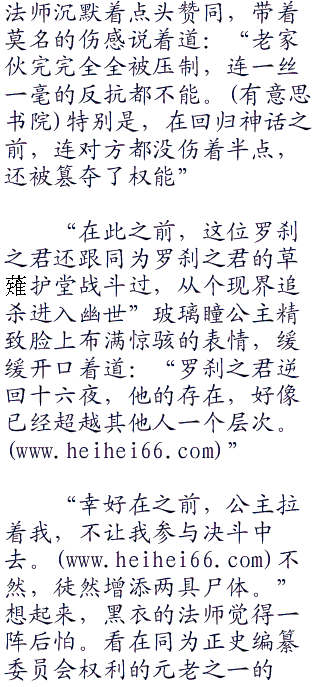 法师沉默着点头赞同，带着
莫名的伤感说着道：“老家
伙完完全全被压制，连一丝
一毫的反抗都不能。(有意思
书院)特别是，在回归神话之
前，连对方都没伤着半点，
还被篡夺了权能”
“在此之前，这位罗刹
之君还跟同为罗刹之君的草
薙护堂战斗过，从个现界追
杀进入幽世”玻璃瞳公主精
致脸上布满惊骇的表情，缓
缓开口着道：“罗刹之君逆
回十六夜，他的存在，好像
已经超越其他人一个层次。
(www.heihei66.com)”
“幸好在之前，公主拉
着我，不让我参与决斗中
去。(www.heihei66.com)不
然，徒然增添两具尸体。”
想起来，黑衣的法师觉得一
阵后怕。看在同为正史编纂
委员会权利的元老之一的